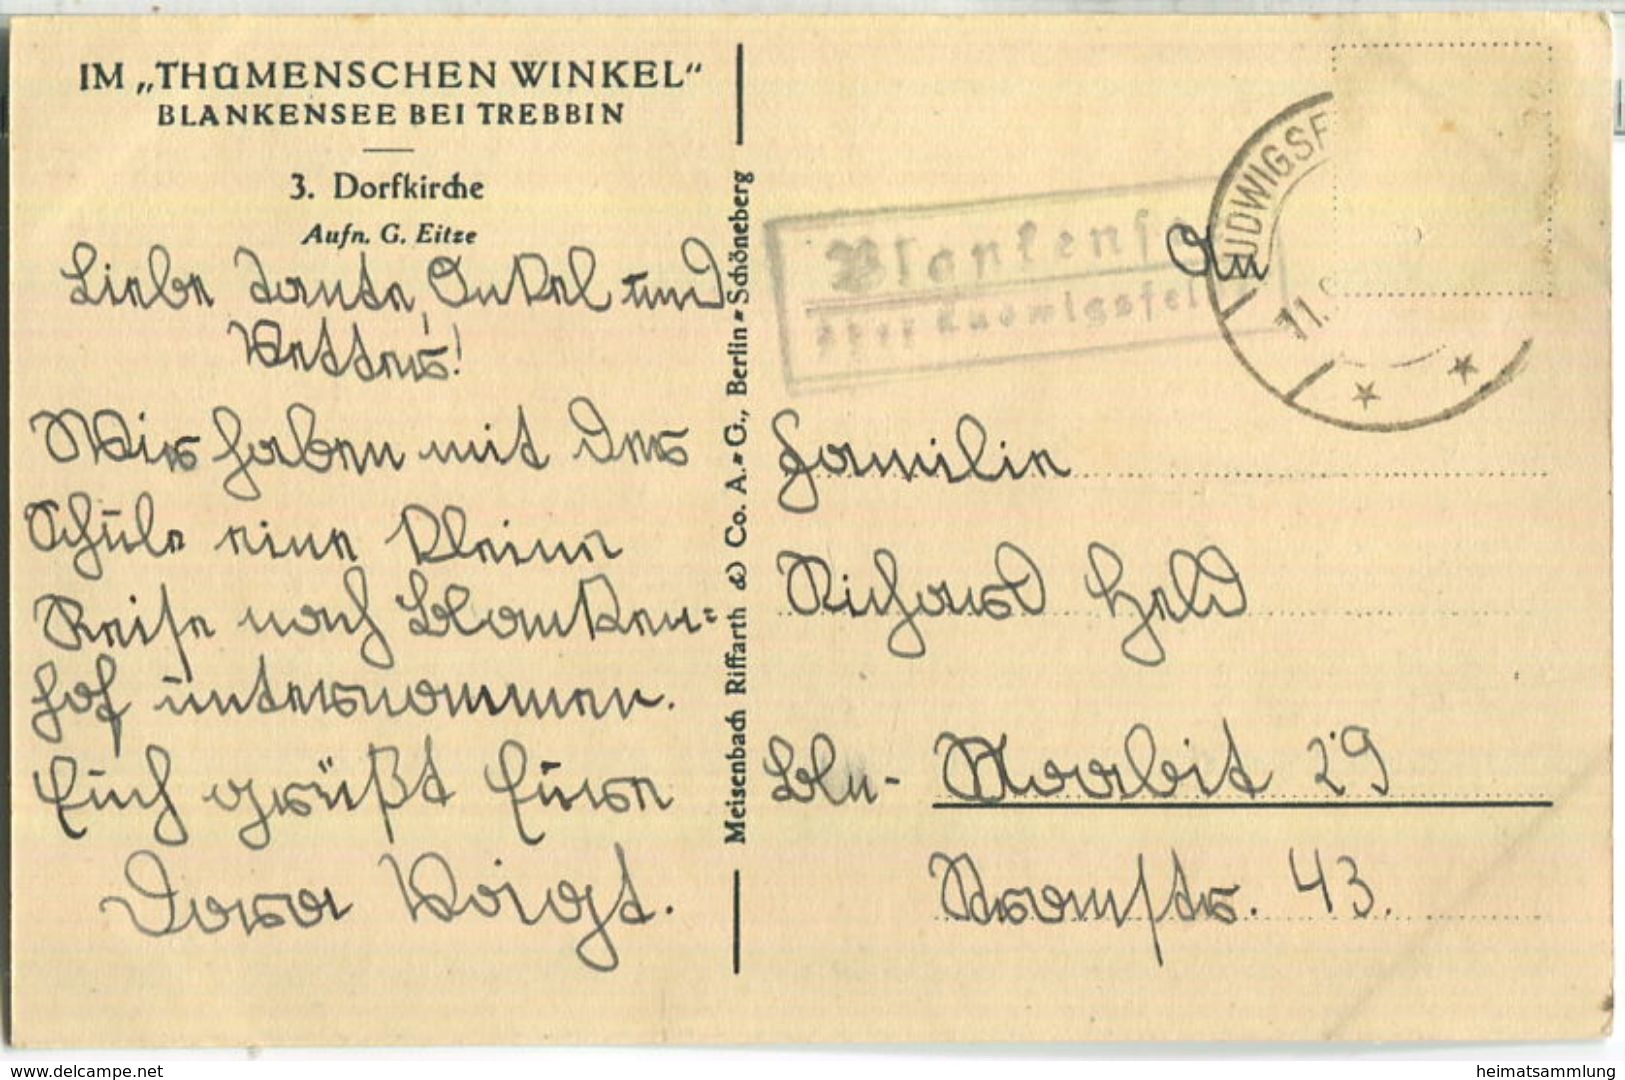 IM „THÜMENSCHEN WINKEL“
BLANKENSEE BEI TREBBIN
3. Dorfkirche
Aufn. G. Eitze
Liebe Tante, Onkel und
Vetter!
Wir haben mit der
Schule eine kleine
Reise nach Blanken=
hof unternommen.
Euch grüßt Eure
Dora Voigt.
Meisenbach Riffarth & Co. A.=G., Berlin=Schöneberg
Blankens
über Ludwigsfel
LUDWIGSF
11.
An
Familie
Richard Held
Bln- Moabit 29
43.
delcampe.net
heimatsammlung